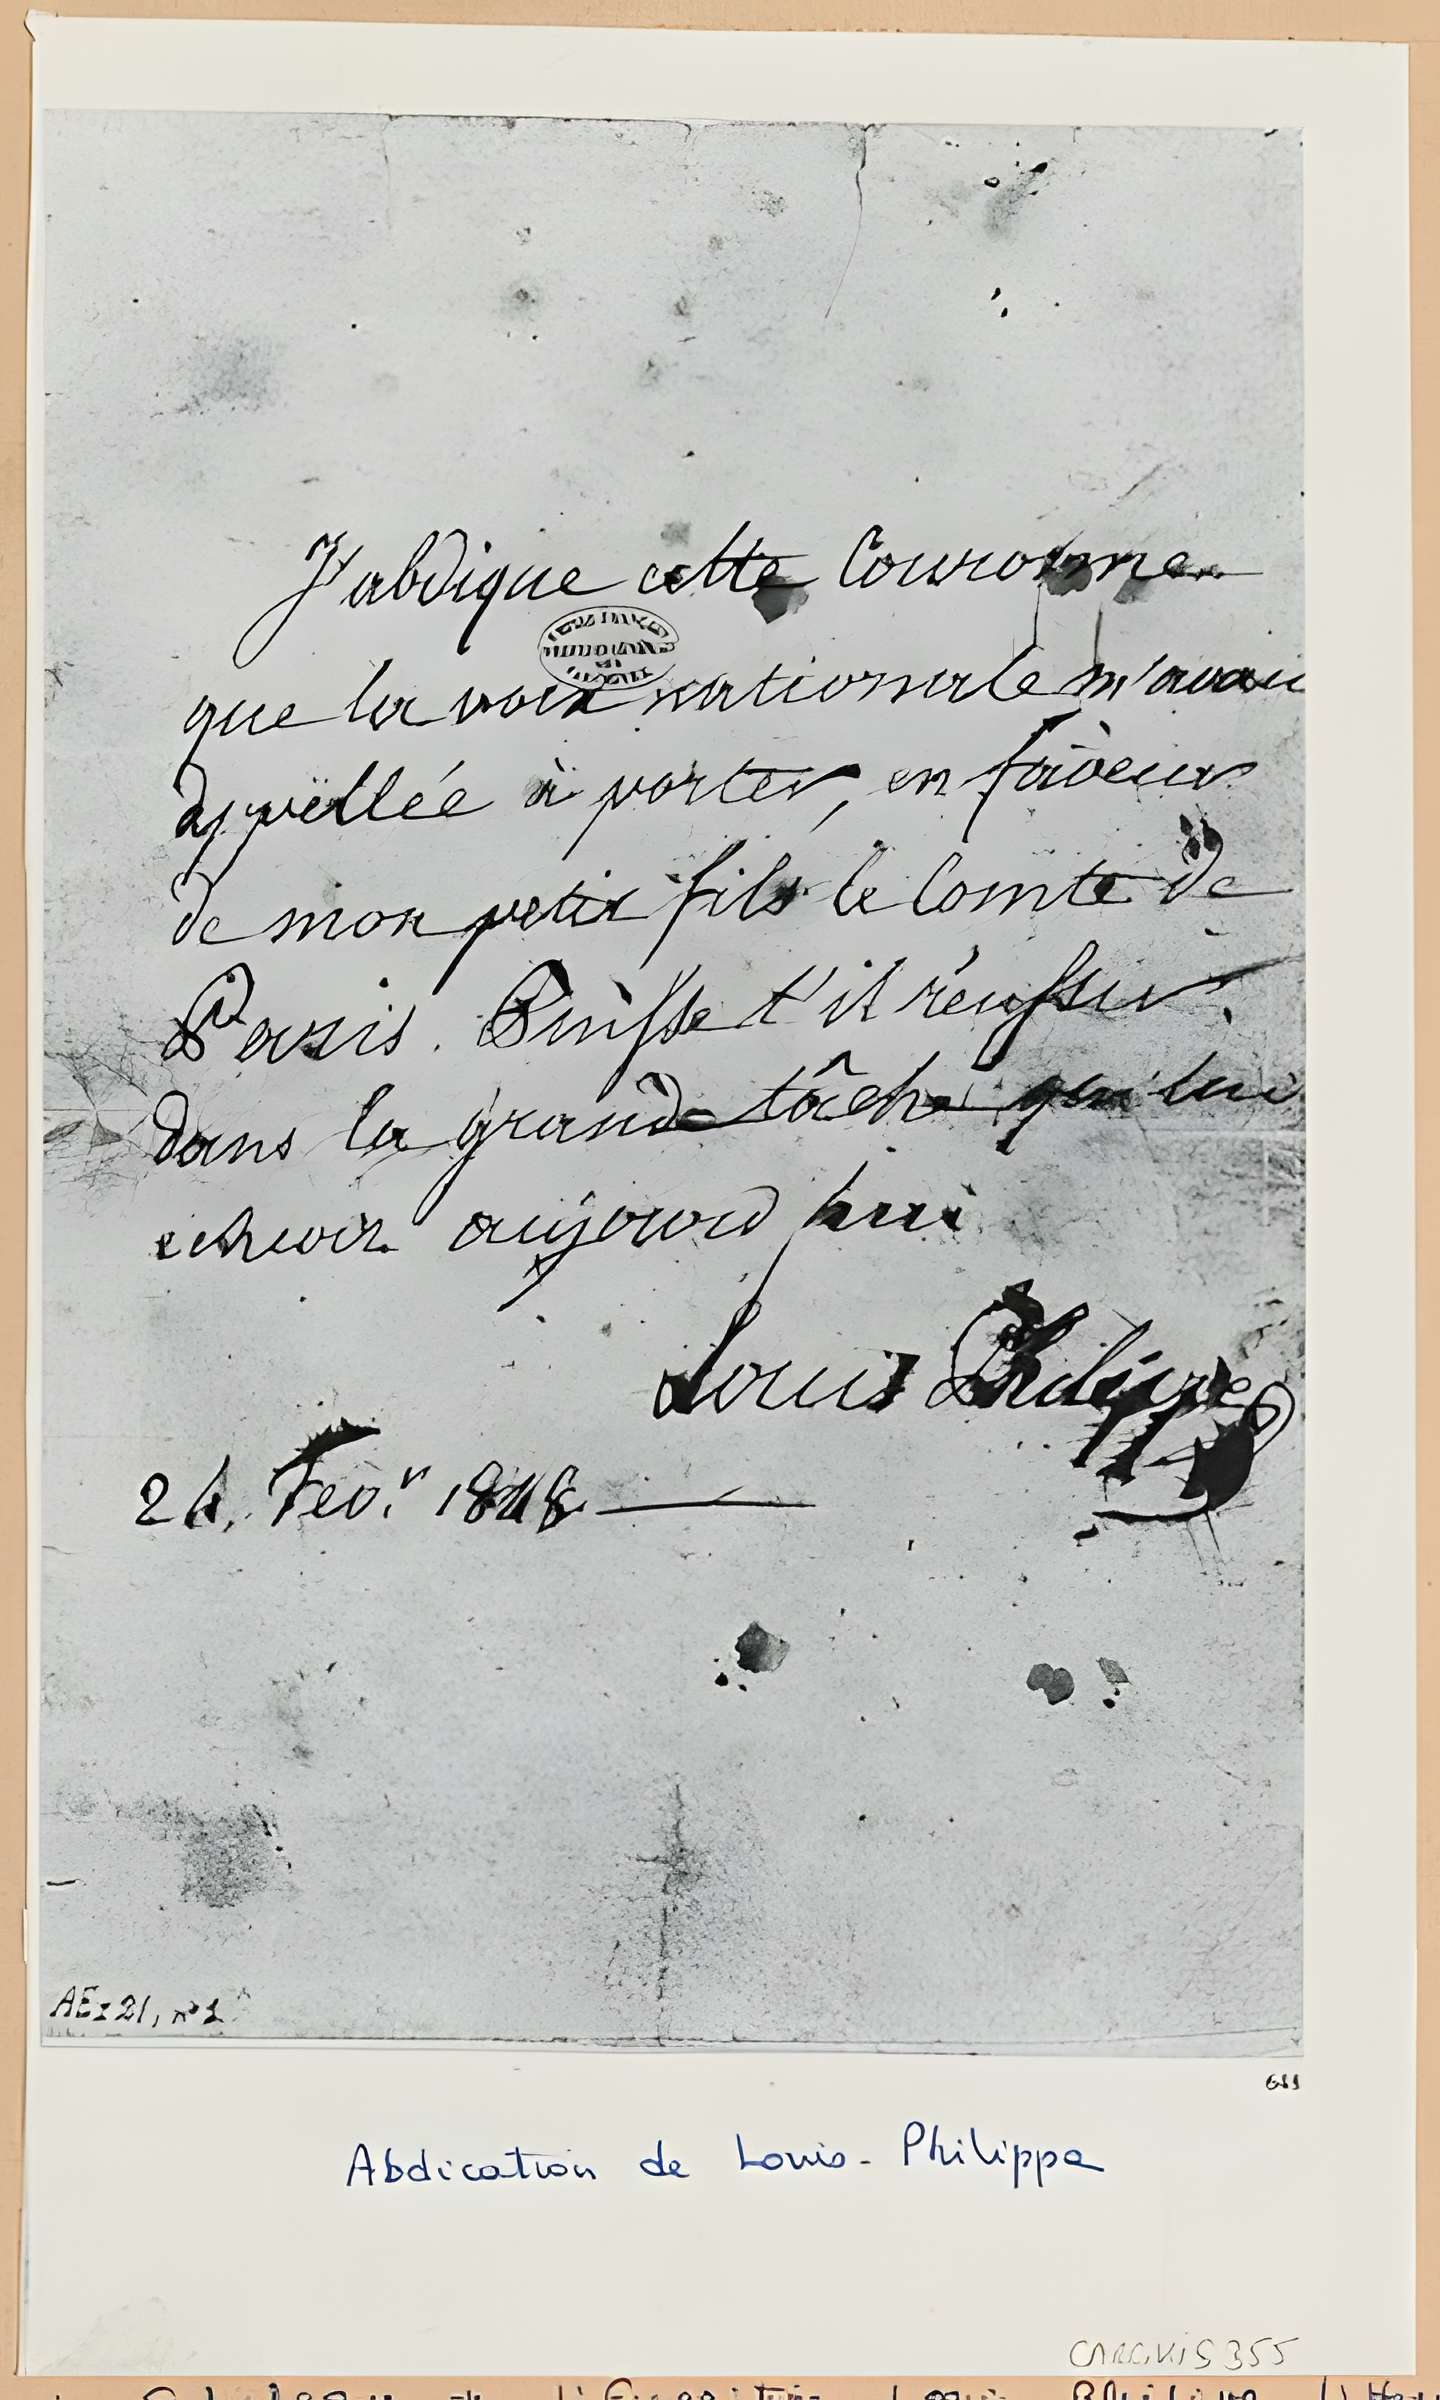 J'abdique cette Couronne
que la voix nationale m'avait
appellée à porter, en faveur
de mon petit fils le Comte de
Paris. Puisse t'il réussir
dans la grande tâche qui lui
echeoit aujourd'hui
Louis Philippe
24. Fev.r 1848
AE I 21, n° 1
Abdication de Louis-Philippe
CARC.VIS 355